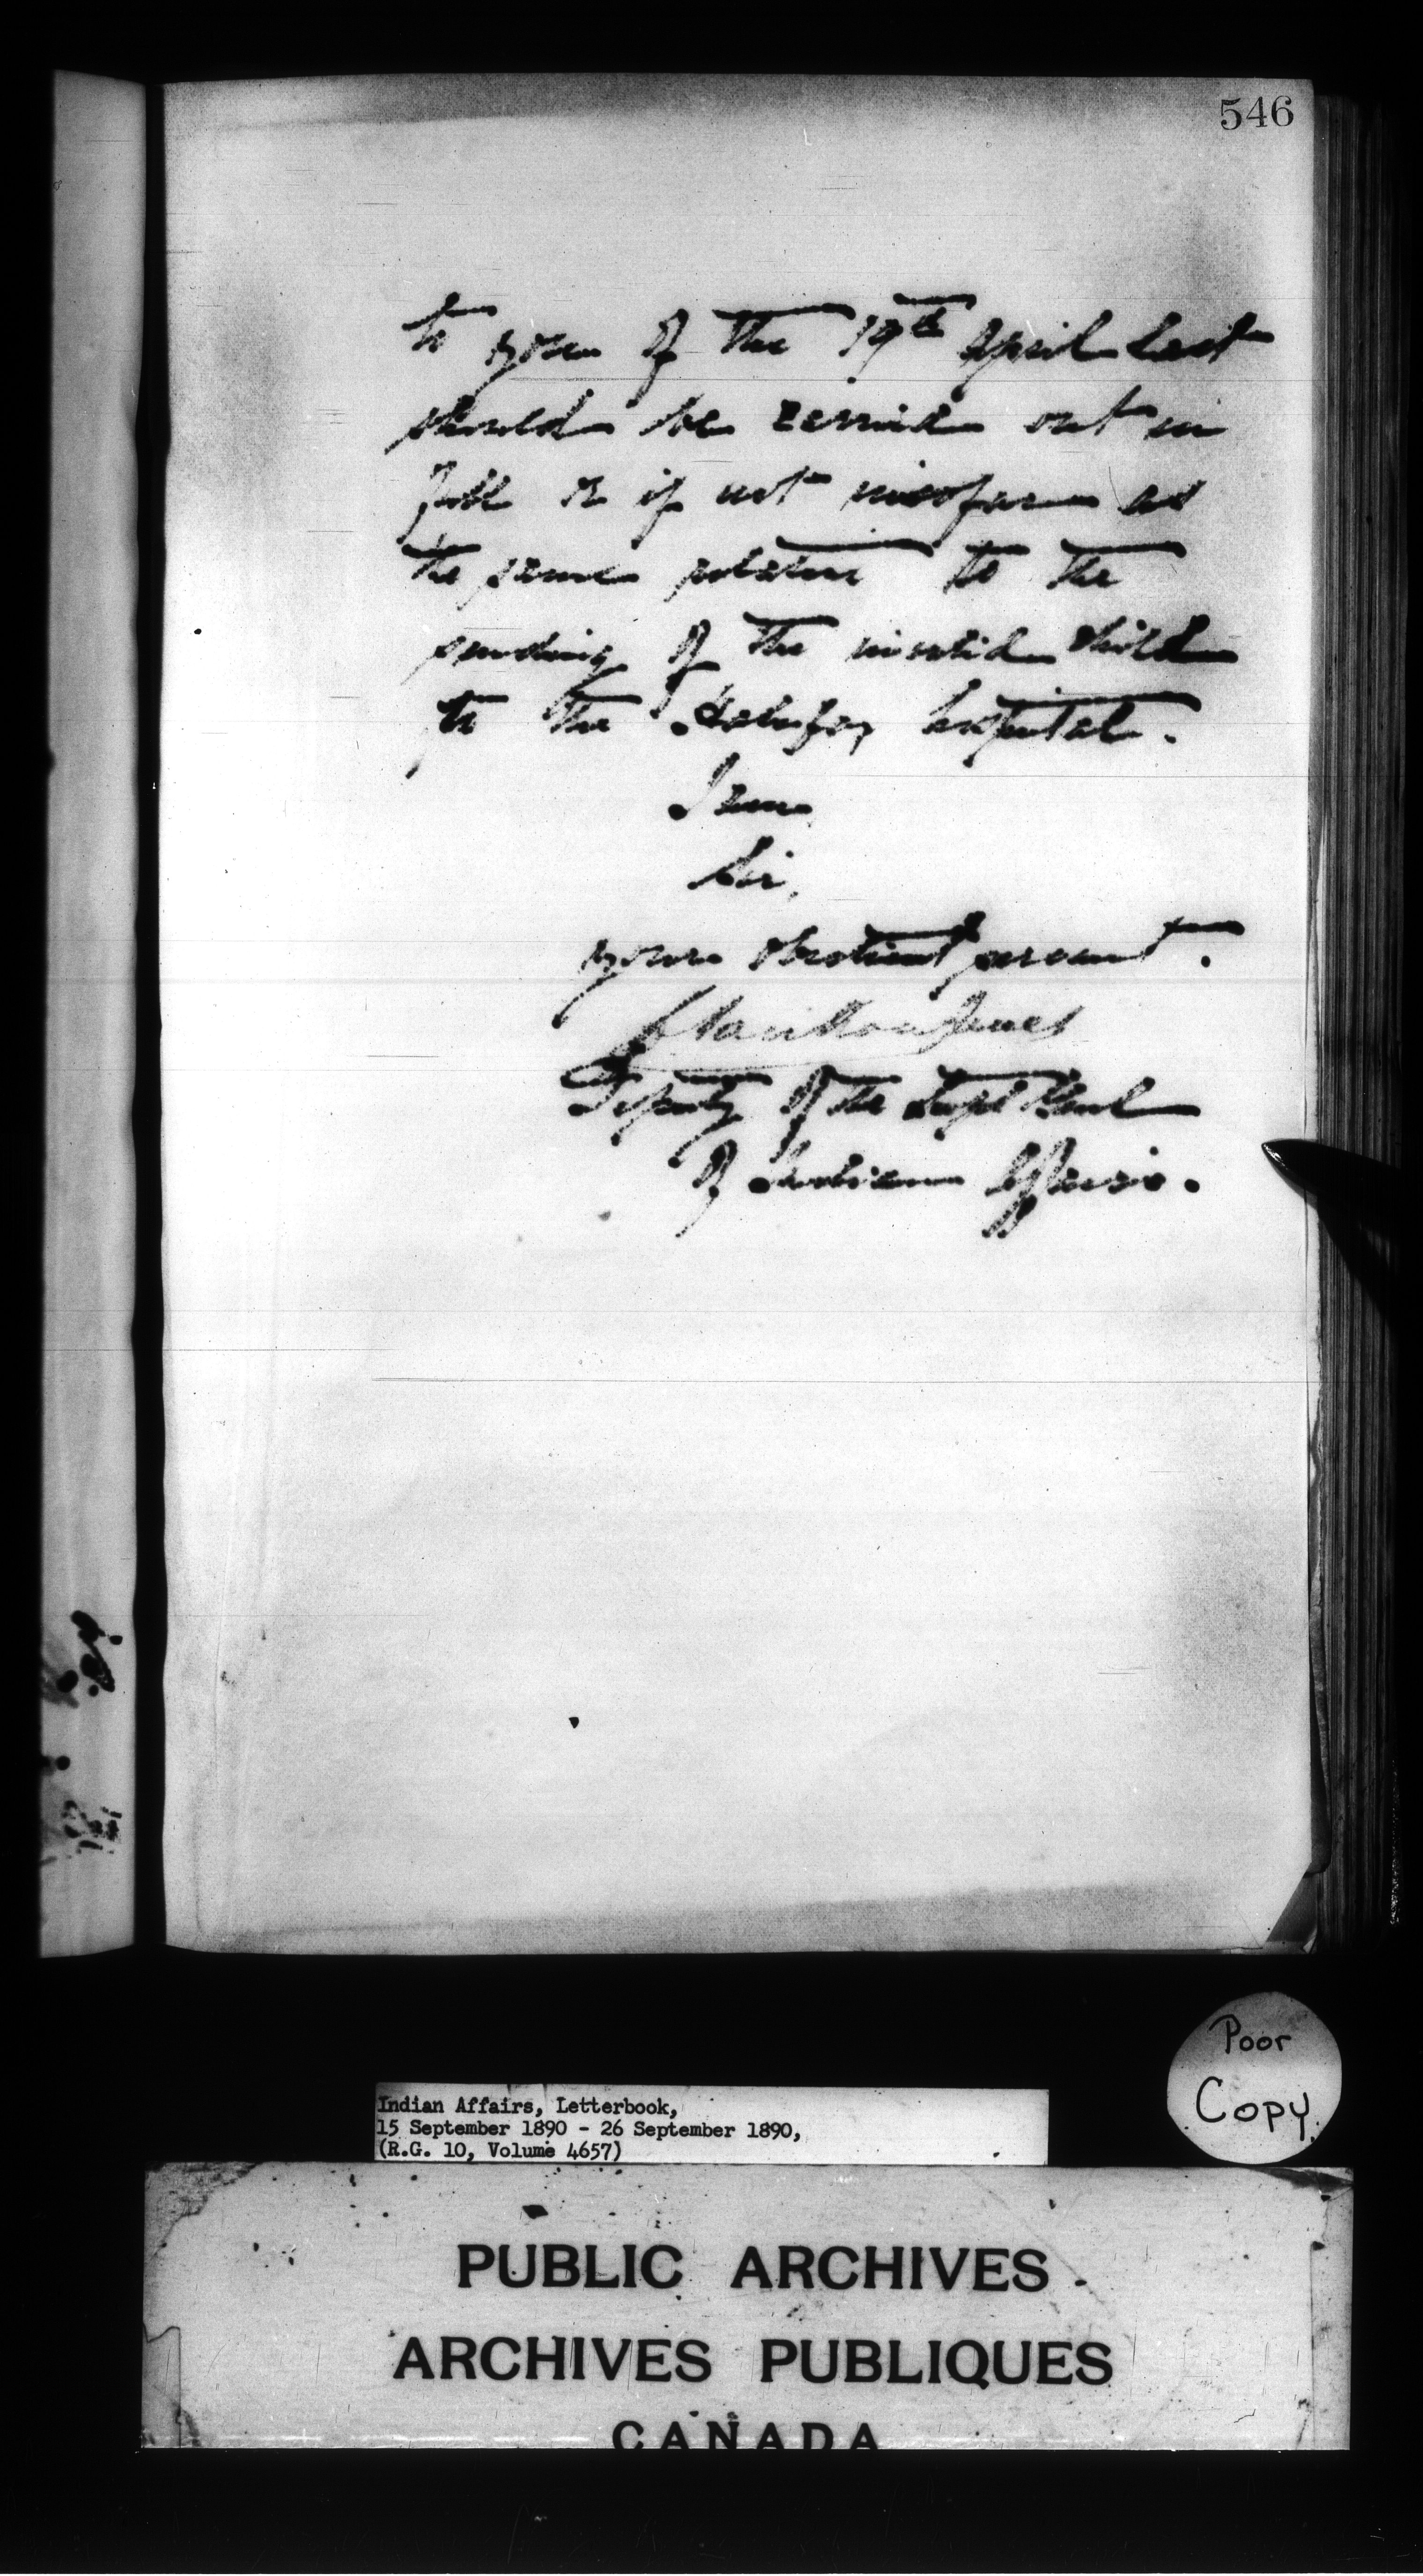 546
to yours of the 19th April last
should be carried out in
full or if not insofar as
the same relates to the
sending of the invalid child
to the Halifax hospital.
I am
Sir,
your obedient servant.
L Vankoughnet
Deputy of the Supt Genl
of Indian Affairs.
Poor
Copy.
Indian Affairs, Letterbook,
15 September 1890 - 26 September 1890,
(R.G. 10, Volume 4657)
PUBLIC ARCHIVES
ARCHIVES PUBLIQUES
CANADA